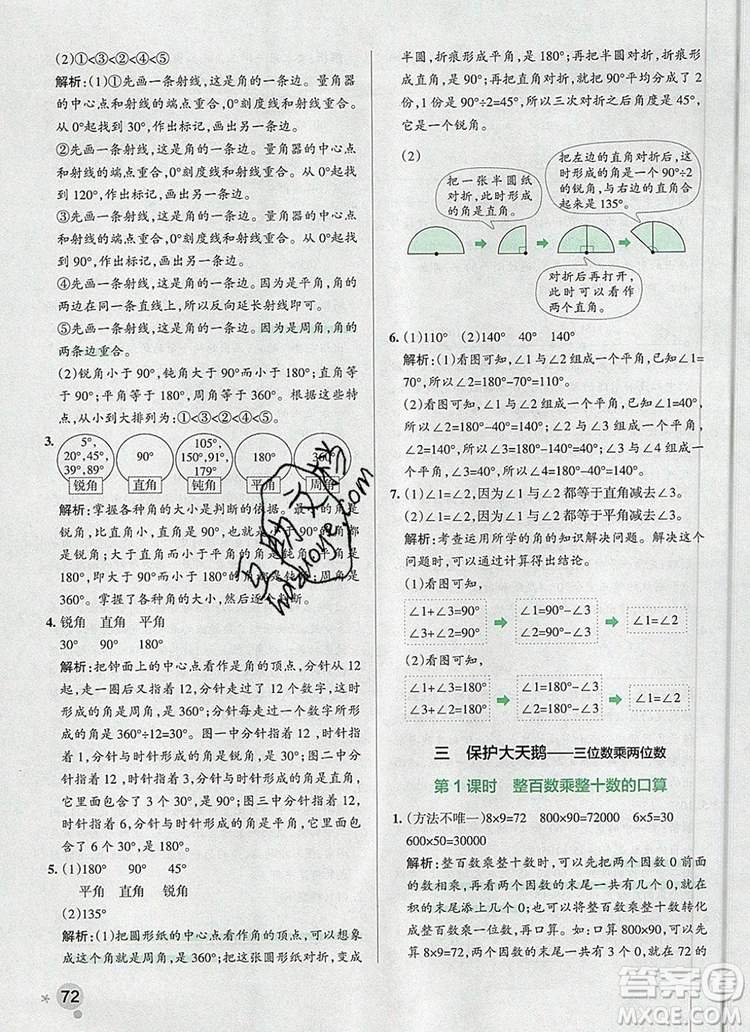 (2)①<③<②<④<⑤
解析:(1)①先画一条射线,这是角的一条边。量角器
的中心点和射线的端点重合,0°刻度线和射线重合。
从0°起找到30°,作出标记,画出另一条角。
②先画一条射线,这是角的一条边。量角器的中心点
和射线的端点重合,0°刻度线和射线重合。从0°起找
到120°,作出标记,画出另一条角。
③先画一条射线,这是角的一条边。量角器的中心点
和射线的端点重合,0°刻度线和射线重合。从0°起找
到90°,作出标记,画出另一条角。
④先画一条射线,这是角的一条边。因为是平角,角的
两边在同一条直线上,所以反向延长射线即可。
⑤先画一条射线,这是角的一条边。因为是周角,角的
两条边重合。
(2)锐角小于90°,钝角大于90°而小于180°,直角等
于90°,平角等于180°,周角等于360°。根据这些特
点,从小到大排列为:①<③<②<④<⑤。
3.
5°,
20°,45°,
39°,89°
90°
105°,
150°,91°,
179°
180°
360°
锐角 直角 钝角 平角 周角
解析:掌握各种角的大小是判断的依据。最小的角是
锐角,比直角小,直角是90°,直角比锐角大,比钝角
小。钝角大于90°而小于180°,平角是钝角
180°,周角是360°。
度。掌握了各种角的大小,然后逐一判断。
4. 锐角 直角 平角
30° 90° 180°
解析:把钟面上的中心点看作是角的顶点,从12起,
又回到12,这是一个周角,是360°。钟面上有12个数
字,这就是把360°平均分成了12个角,每相邻两个数
形成的角是30°;分针每走一个数字,所形成的角就
是30°。图一中分针指着12,时针指着1,这时分针与
时针所形成的角是锐角,是30°;图二中分针指着12,
时针指着9,分针与时针形成的角是直角,它包含了3
个30°,是90°;图三中分针指着12,时针指着6,这时
分针与时针所形成的角是平角,是180°,因为它包含
了6个30°。
5. (1)180° 90° 45°
平角 直角 锐角
(2)135°
解析:(1)把圆形纸的中心点看作角的顶点,可以想象
成这个角就是周角,是360°;把这张圆形纸对折,变成
72
半圆,折痕形成平角,是180°;再把这个半圆对折,折痕
形成直角,是90°;再把直角对折,就把90°平均分成了2
份,1份是90°÷2=45°,所以三次对折之后的角度是45°,
它是一个锐角。
(2)
把一张半圆纸
对折,此时形成
的角是直角。
把左边的直角对折后,这
时形成的角是一个90°÷2
的锐角,与右边的直角合
起来是135°。
对折后再打开,
此时可以看作
两个直角。
6. (1)110° (2)140° 40° 140°
解析:(1)看图可知,∠1与∠2组成一个平角,已知∠1=
70°,所以∠2=180°-∠1=180°-70°=110°。
(2)看图可知,∠1与∠2组成一个平角,已知∠1=40°,
所以∠2=180°-∠1=180°-40°=140°;∠2与∠3组
成一个平角,∠2=140°,所以∠3=180°-∠2=180°-
140°=40°;∠1与∠4组成一个平角,已知∠1=40°,所以
∠4=180°-∠1=180°-40°=140°。
7. (1)∠1=∠2,因为∠1与∠2都等于直角减去∠3。
(2)∠1=∠2,因为∠1与∠2都等于平角减去∠3。
解析:考查运用所学的角的知识解决问题。解决这个
问题时,可以通过计算得出结论。
(1)看图可知:
∠1+∠3=90°
∠2+∠3=90°
∠1=90°-∠3
∠2=90°-∠3
∠1=∠2
(2)看图可知:
∠1+∠3=180°
∠2+∠3=180°
∠1=180°-∠3
∠2=180°-∠3
∠1=∠2
三 保护大天鹅——三位数乘两位数
第1课时 整百数乘整十数的口算
1. (方法不唯一)8×9=72 800×90=72000 6×5=30
600×50=30000
解析:整百数乘整十数时,可以先把两个因数的0前面
的数相乘,再看两个因数的末尾一共有几个0,就在
积的末尾添上几个0。这样就把整百数乘整十数转化
成了整数乘一位数,再口算。如:口算800×90,可以先
算8×9=72,两个因数的末尾一共有3个0,就在72的
答案圈
MXQE.COM